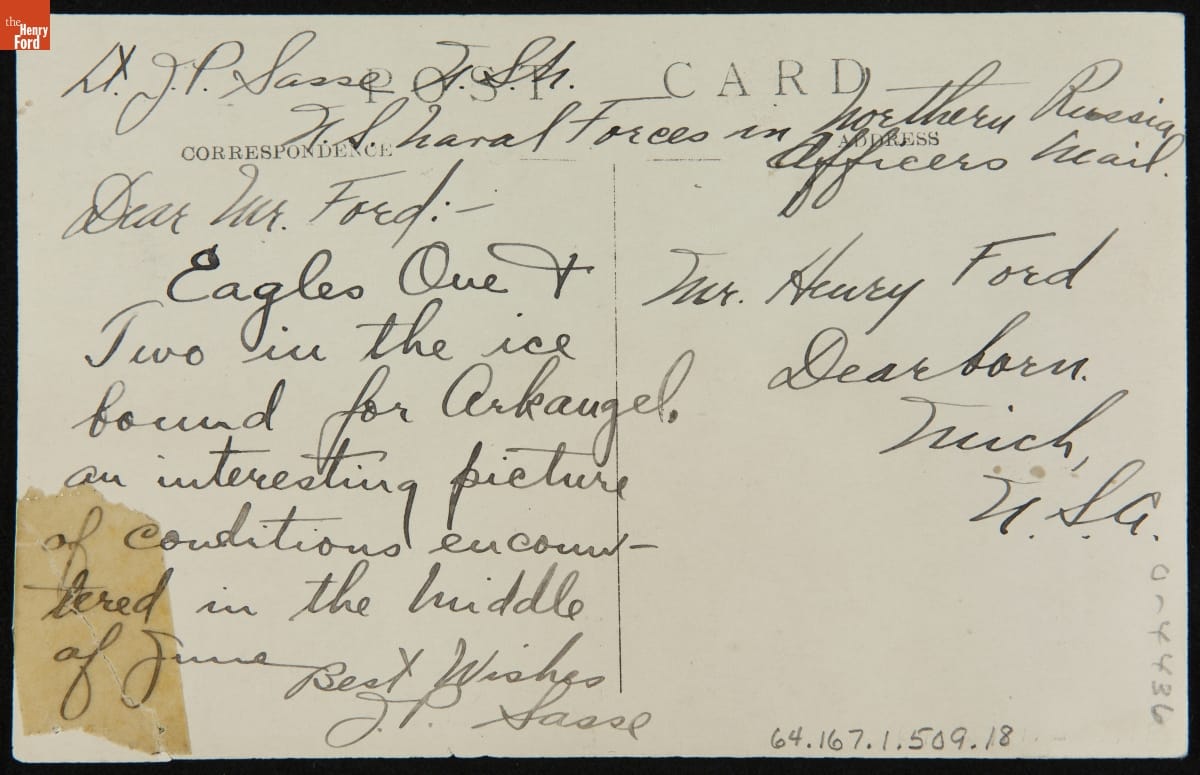 the
Henry
Ford
POST CARD
Lt. J.P. Sasse U.S.N.
U.S. Naval Forces in Northern Russia
Officers Mail.
CORRESPONDENCE
ADDRESS
Dear Mr. Ford:-
Eagles One &
Two in the ice
bound for Arkangel.
an interesting picture
of conditions encoun-
tered in the middle
of June
Best Wishes
J.P. Sasse
Mr. Henry Ford
Dearborn.
Mich,
U.S.A.
0-4436
64.167.1.509.18